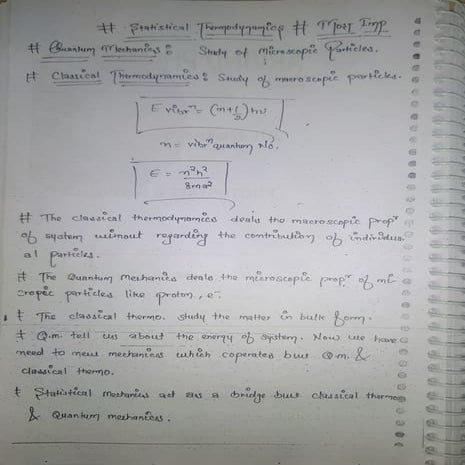 # Statistical Thermodynamics # Most Imp
# Quantum Mechanics : Study of Microscopic Particles.
# Classical Thermodynamics : Study of macroscopic particles.
E vibrⁿ = (n+1/2)hν
n = vibrⁿ quantum No.
E = n²h²/8ma²
# The classical thermodynamics deals the macroscopic propʳ
of system without regarding the contribution of individu
al particles.
# The Quantum Mechanics deals the microscopic propʳ of mi
cropic particles like proton, e⁻.
# The classical thermo. study the matter in bulk form.
# Q.m. tell us about the energy of system. Now we have
need to mechanics which coperates Q.m. &
classical thermo.
# Statistical mechanics act as a bridge classical thermo
& Quantum mechanics.